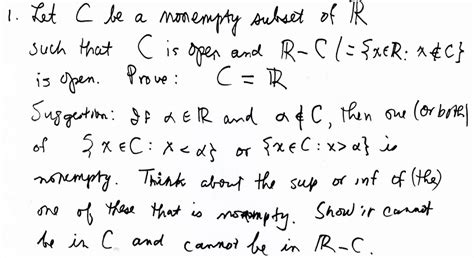 1. Let C be a nonempty subset of ℝ
such that C is open and ℝ-C (= {x∈ℝ: x∉C}
is open. Prove: C = ℝ
Suggestion: If α∈ℝ and α∉C, then one (or both)
of {x∈C: x<α} or {x∈C: x>α} is
nonempty. Think about the sup or inf of (the)
one of these that is nonempty. Show it cannot
be in C and cannot be in ℝ-C.